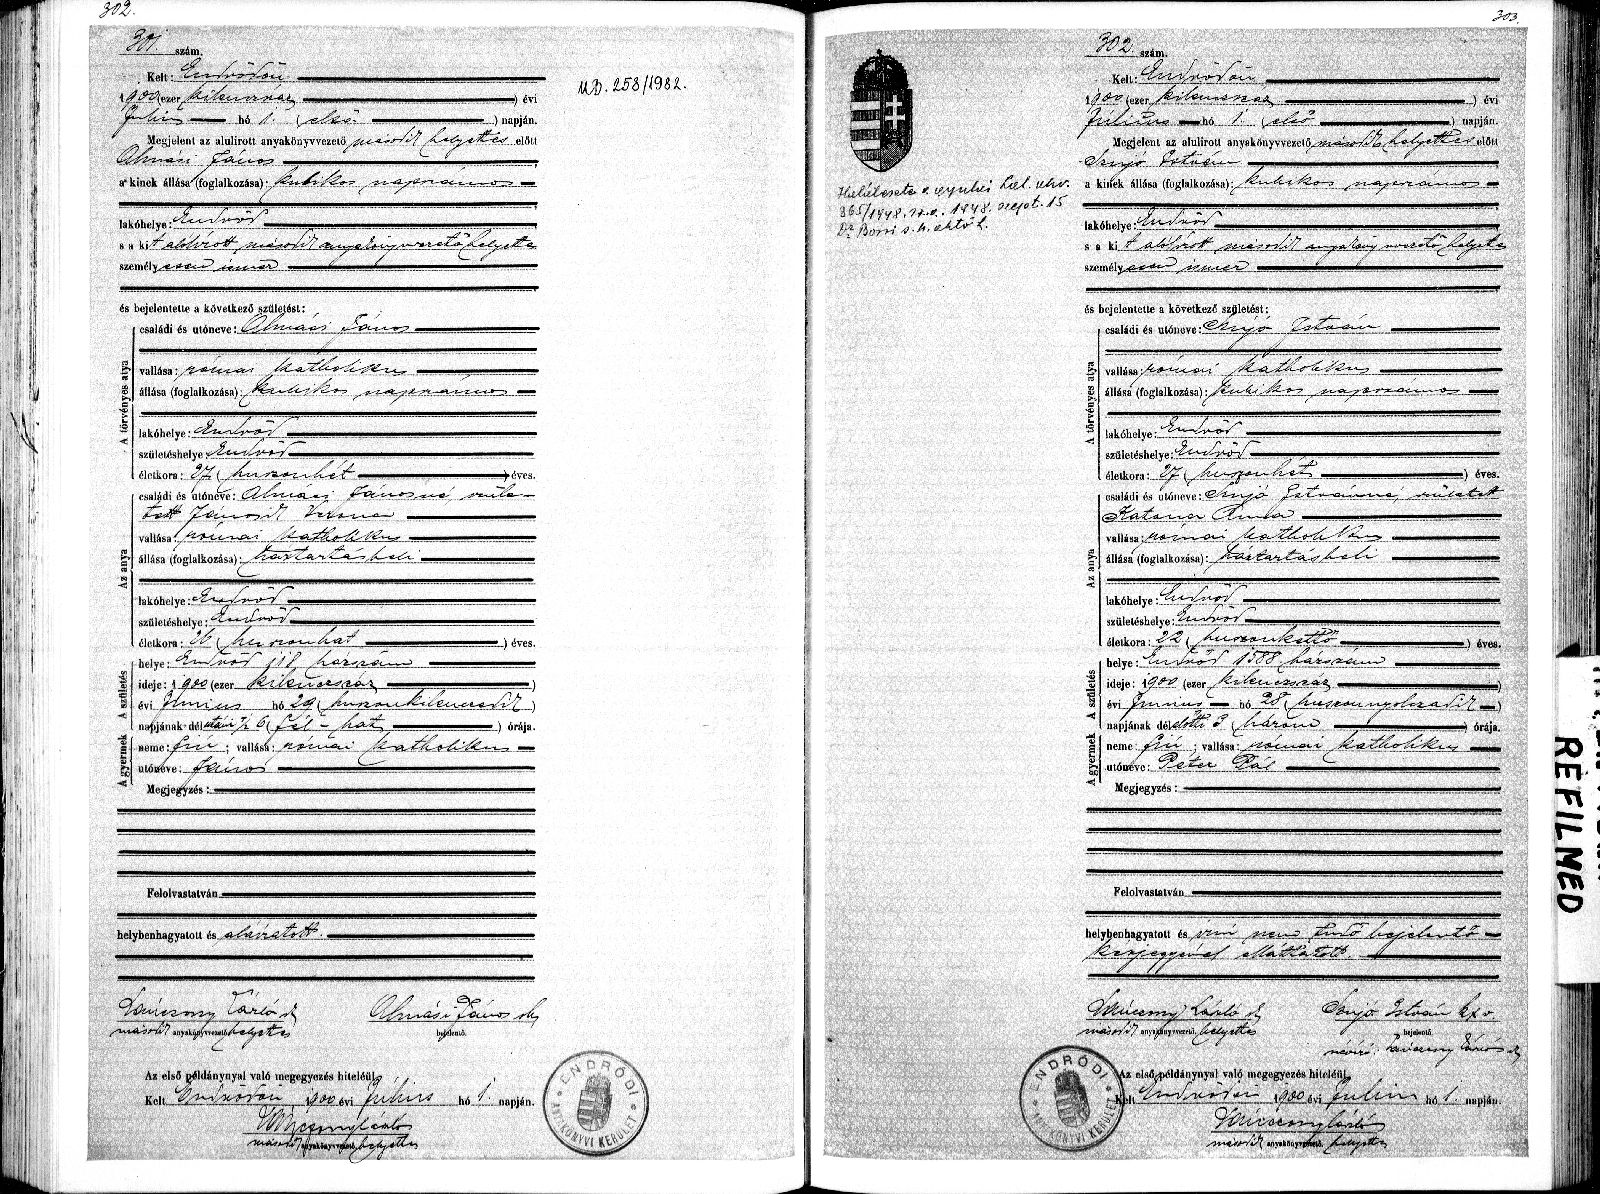 302.
301. szám.
Kelt: Endrődön
1900 (ezer kilenczszáz ) évi
Július hó 1. (első ) napján.
Megjelent az alulirott anyakönyvvezető második helyettes előtt
Almási János
a kinek állása (foglalkozása): kubikos napszámos
lakóhelye: Endrőd
s a kit alólírott második anyakönyvvezető helyettes
személyesen ismer
és bejelentette a következő születést:
A törvényes atya
családi és utóneve: Almási János
vallása: római katholikus
állása (foglalkozása): kubikos napszámos
lakóhelye: Endrőd
születéshelye: Endrőd
életkora: 27 (huszonhét ) éves.
Az anya
családi és utóneve: Almási Jánosné szüle-
tett Jánosik Verona
vallása: római katholikus
állása (foglalkozása): háztartásbeli
lakóhelye: Endrőd
születéshelye: Endrőd
életkora: 26 (huszonhat ) éves.
A születés
helye: Endrőd házszám
ideje: 1900 (ezer kilenczszáz )
évi Június hó 29 (huszonkilenczedik )
napjának délutáni ½ 6 (fél-hat ) órája.
A gyermek
neme: fiú ; vallása: római katholikus
utóneve: János
Megjegyzés:
Felolvastatván
helybenhagyatott és aláíratott.
László
Almási János
második anyakönyvvezető helyettes
bejelentő.
Az első példánynyal való megegyezés hiteléül,
Kelt Endrődön 1900 évi Július hó 1. napján.
második anyakönyvvezető, helyettes
ENDRŐDI ANYAKÖNYVI KERÜLET
258/1982.
303.
302 szám.
Kelt: Endrődön
1900 (ezer kilenczszáz ) évi
Július hó 1. (első ) napján.
Megjelent az alulirott anyakönyvvezető második helyettes előtt
István
a kinek állása (foglalkozása): kubikos napszámos
lakóhelye: Endrőd
s a kit alólírott második anyakönyvvezető helyettes
személyesen ismer
és bejelentette a következő születést:
A törvényes atya
családi és utóneve: István
vallása: római katholikus
állása (foglalkozása): kubikos napszámos
lakóhelye: Endrőd
születéshelye: Endrőd
életkora: 27 (huszonhét ) éves.
Az anya
családi és utóneve: Istvánné, született
Katona Anna
vallása: római katholikus
állása (foglalkozása): háztartásbeli
lakóhelye: Endrőd
születéshelye: Endrőd
életkora: 22 (huszonkettő ) éves.
A születés
helye: Endrőd 1588 házszám
ideje: 1900 (ezer kilenczszáz )
évi Június hó 28 (huszonnyolczadik )
napjának délelőtti 3 (három ) órája.
A gyermek
neme: fiú ; vallása: római katholikus
utóneve: Péter Pál
Megjegyzés:
Felolvastatván
helybenhagyatott és írni nem tudó bejelentő
kézjegyével elláttatott.
László
István
második anyakönyvvezető, helyettes
bejelentő
névíró:
Az első példánynyal való megegyezés hiteléül,
Kelt Endrődön 1900 évi Július hó 1. napján.
második anyakönyvvezető, helyettes
ENDRŐDI ANYAKÖNYVI KERÜLET
Halálesete a gyulai
365/1948. 1948. szept. 15
REFILMED